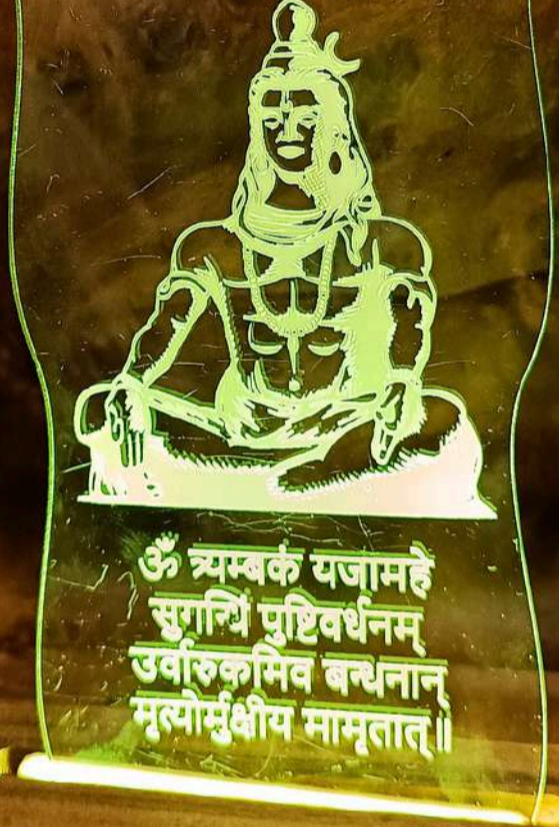 ॐ त्र्यम्बकं यजामहे
सुगन्धिं पुष्टिवर्धनम्
उर्वारुकमिव बन्धनान्
मृत्योर्मुक्षीय मामृतात्॥